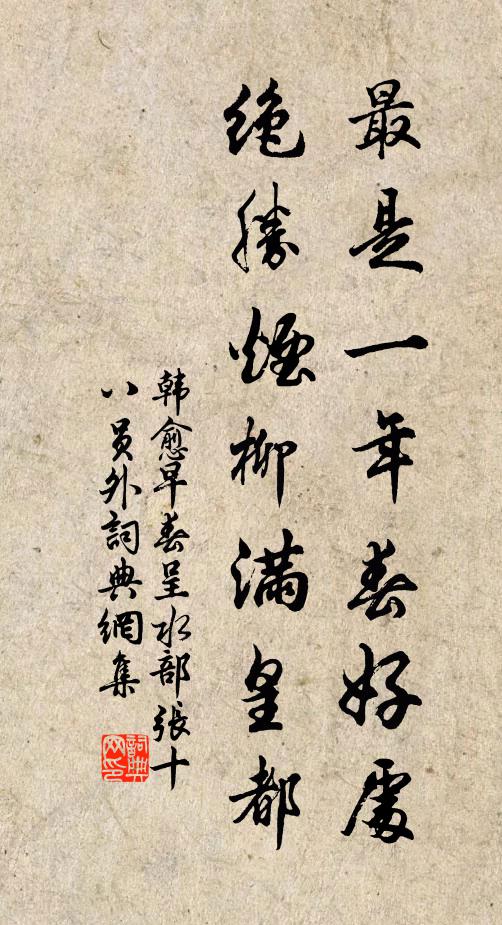 最是一年春好處
绝勝煙柳满皇都
韩愈早春呈水部張十
八員外詞典網集
詞典
网印